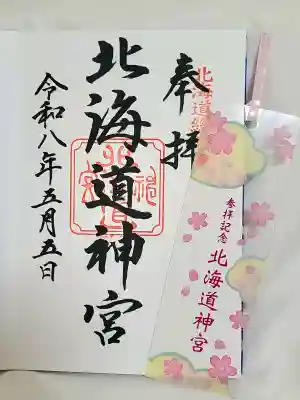 奉拝
北海道總
北海道神宮
令和八年五月五日
参拝記念
北海道神宮